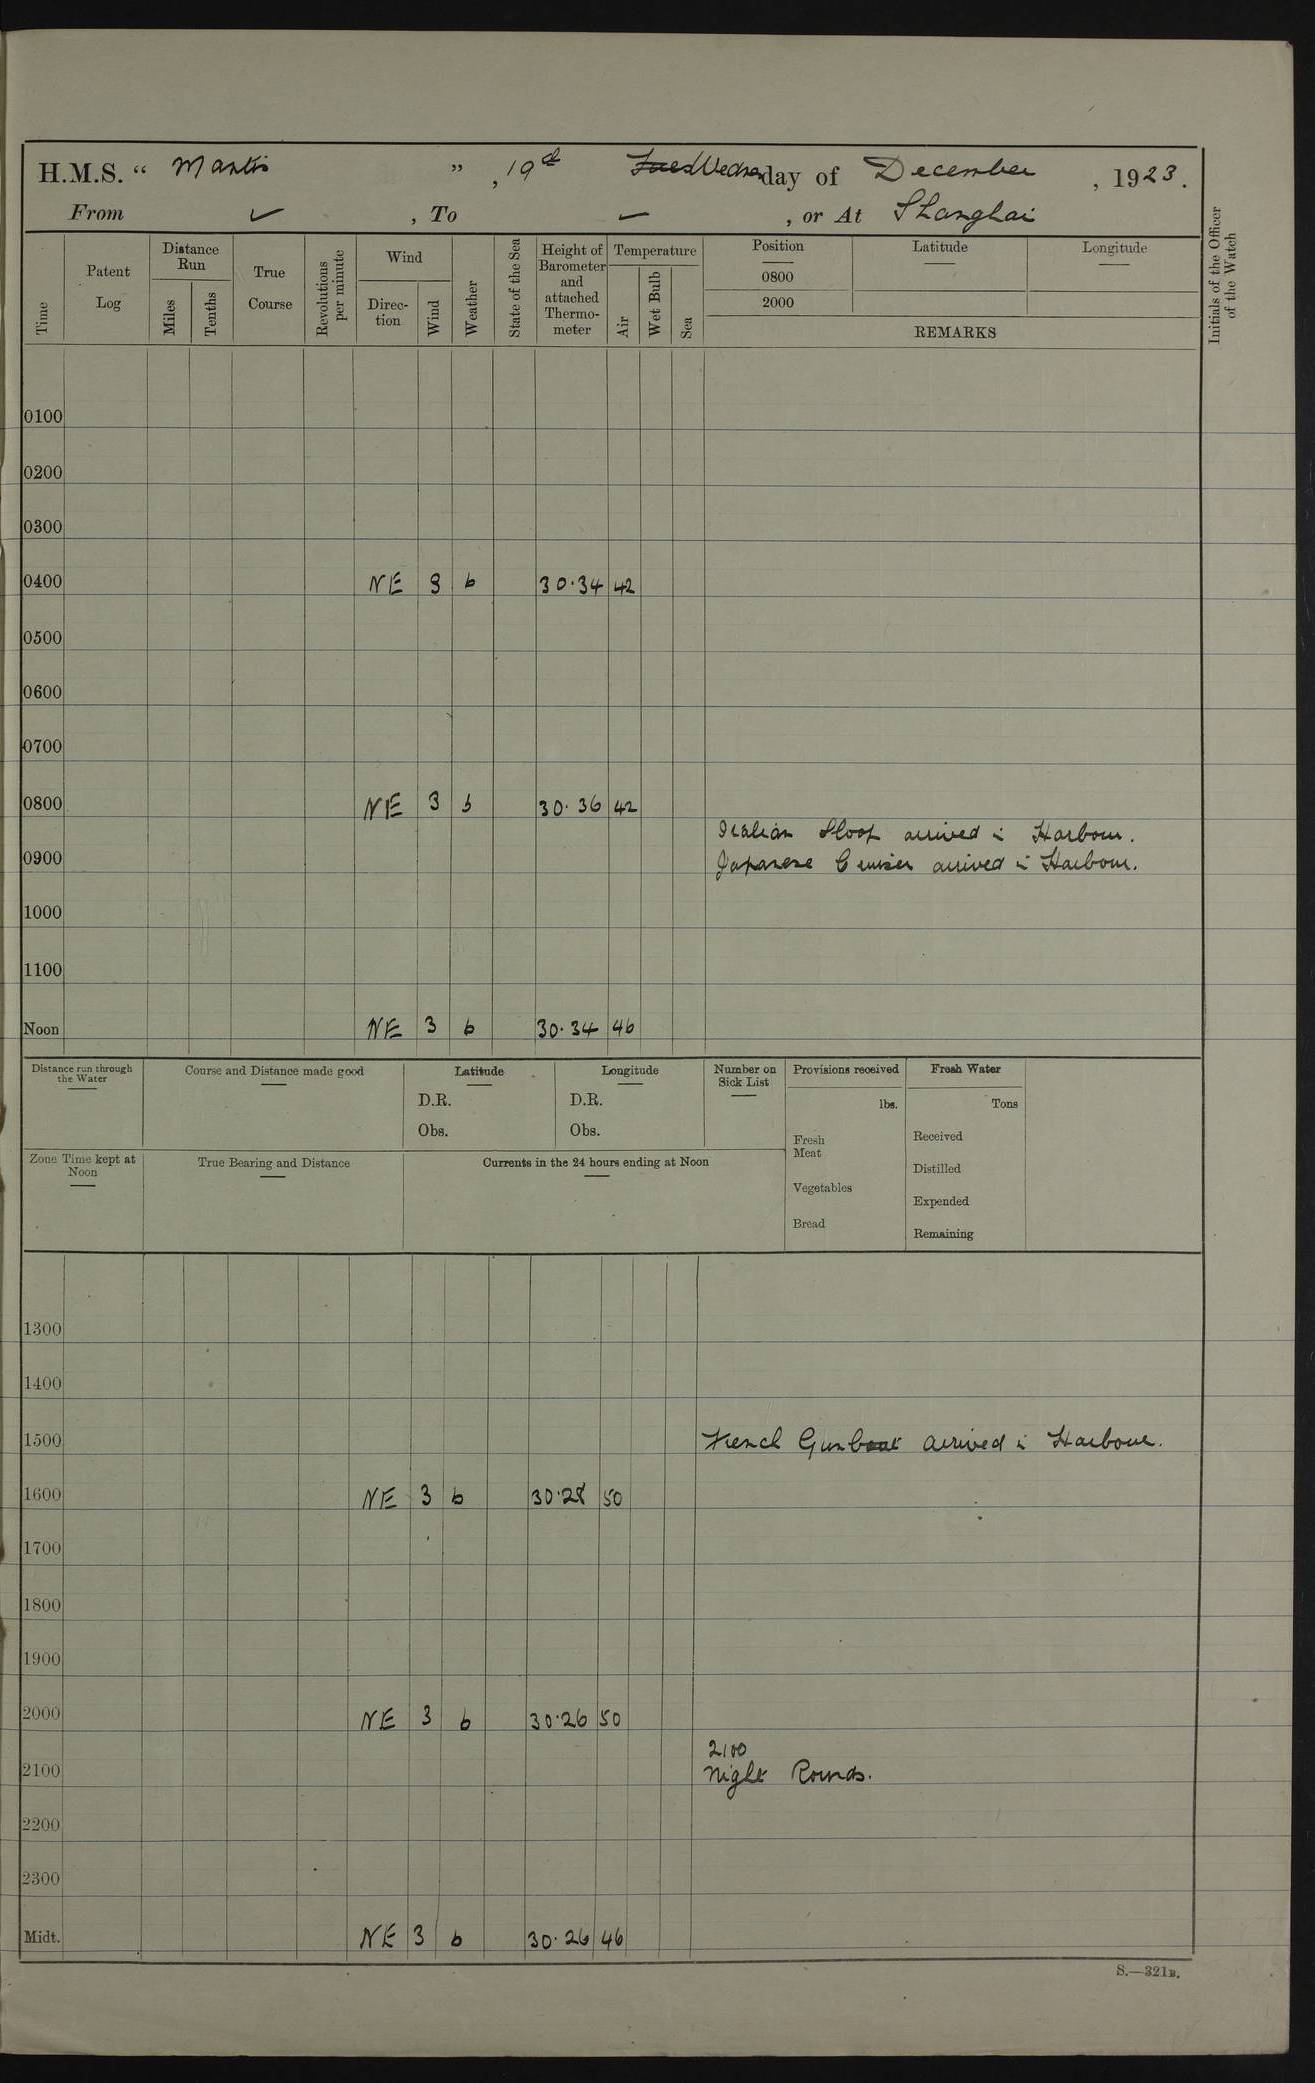 H.M.S. “ Mantis ” , 19th Tues Wednesday of December , 1923.
From ✓ , To — , or At Shanghai
Time
Patent Log
Distance Run
Miles
Tenths
True Course
Revolutions per minute
Wind
Direction
Wind
Weather
State of the Sea
Height of Barometer and attached Thermometer
Temperature
Air
Wet Bulb
Sea
Position Latitude Longitude
0800
2000
REMARKS
Initials of the Officer of the Watch
0100
0200
0300
0400 NE 3 b 30.34 42
0500
0600
0700
0800 NE 3 b 30.36 42
Italian Sloop arrived in Harbour.
0900 Japanese Cruiser arrived in Harbour.
1000
1100
Noon NE 3 b 30.34 46
Distance run through the Water
Course and Distance made good
Latitude
D.R.
Obs.
Longitude
D.R.
Obs.
Number on Sick List
Provisions received
lbs.
Fresh Meat
Vegetables
Bread
Fresh Water
Tons
Received
Distilled
Expended
Remaining
Zone Time kept at Noon
True Bearing and Distance
Currents in the 24 hours ending at Noon
1300
1400
1500 French Gunboat arrived in Harbour.
1600 NE 3 b 30.28 50
1700
1800
1900
2000 NE 3 b 30.26 50
2100
2100 Night Rounds.
2200
2300
Midt. NE 3 b 30.26 46
S.—321B.